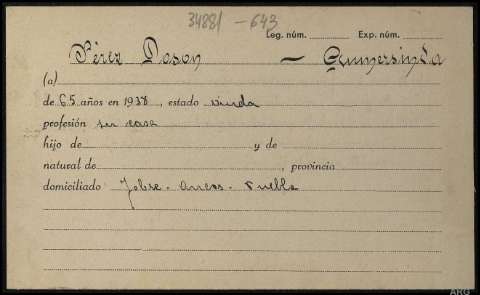 34881 - 643
Leg. núm. Exp. núm.
Pérez Doson — Gumersinda
(a)
de 65 años en 1938, estado viuda
profesión su casa
hijo de y de
natural de , provincia
domiciliado Jobre. Puebla
ARG